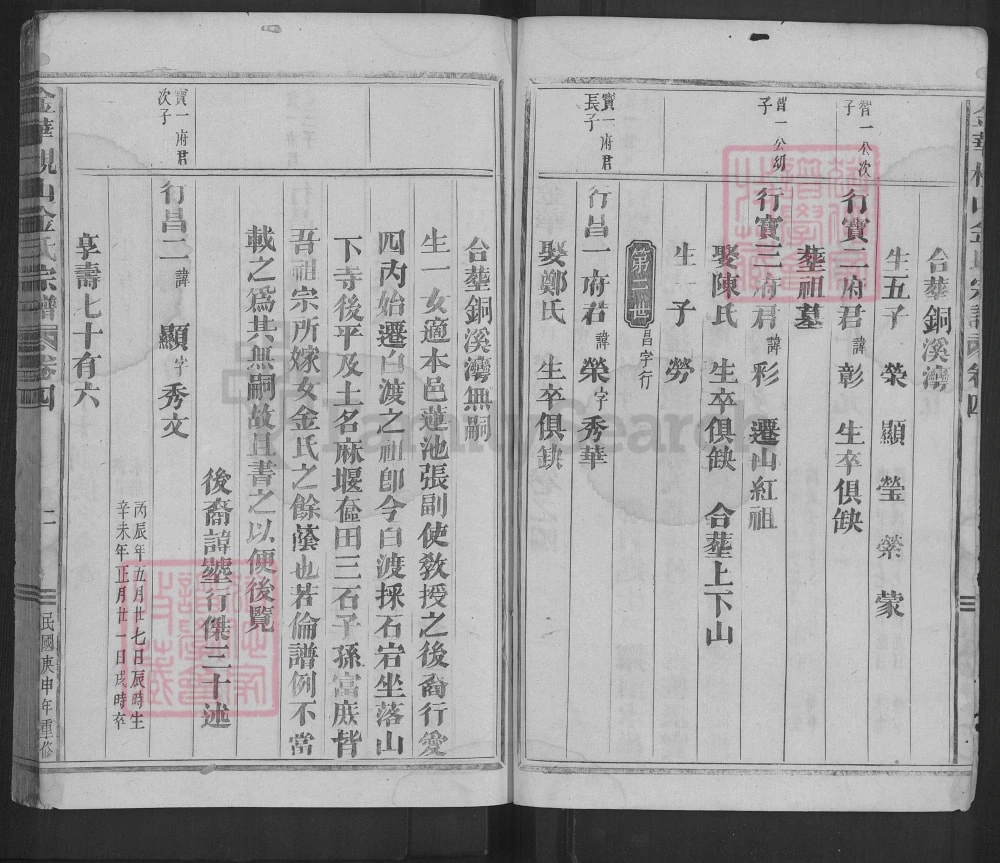 合塟銅溪灣
生五子 榮 顯 瑩 縈 蒙
智一公次子
行寶二府君 諱 彰 生卒俱缺
塟祖墓
智一公幼子
行寶三府君 諱 彩 遷山紅祖
娶陳氏 生卒俱缺 合塟上下山
生一子 勞
第三世 昌字行
寶一府君長子
行昌一府君 諱 榮 字 秀華
娶鄭氏 生卒俱缺
合塟銅溪灣無嗣
生一女適本邑蓮池張副使敎授之後裔行愛
四內始遷白渡之祖卽今白渡採石宕坐落山
下寺後平及土名麻堰壺田三石子孫富庶皆
吾祖宗所嫁女金氏之餘蔭也若倫譜例不當
載之爲其無嗣故且書之以便後覽
後裔諱塋行傑三十述
寶一府君次子
行昌二 諱 顯 字 秀文
丙辰年五月廿七日辰時生
辛未年正月廿一日戌時卒
享壽七十有六
金華峴山金氏宗譜 卷四
二
民國庚申年重修
FamilySearch